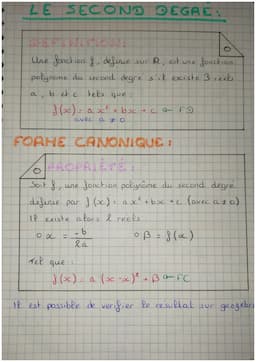 LE SECOND DEGRÉ:
DÉFINITION:
Une fonction f, définie sur ℝ, est une fonction
polynôme du second degré s'il existe 3 réels
a, b et c tels que:
f(x) = a x² + bx + c ← FD
avec a ≠ 0
FORME CANONIQUE:
PROPRIÉTÉ:
Soit f, une fonction polynôme du second degré
définie par f(x) = ax² + bx + c (avec a ≠ 0)
Il existe alors 2 réels
α = -b/2a  β = f(α)
Tel que:
f(x) = a (x - α)² + β ← FC
Il est possible de vérifier le résultat sur geogebra